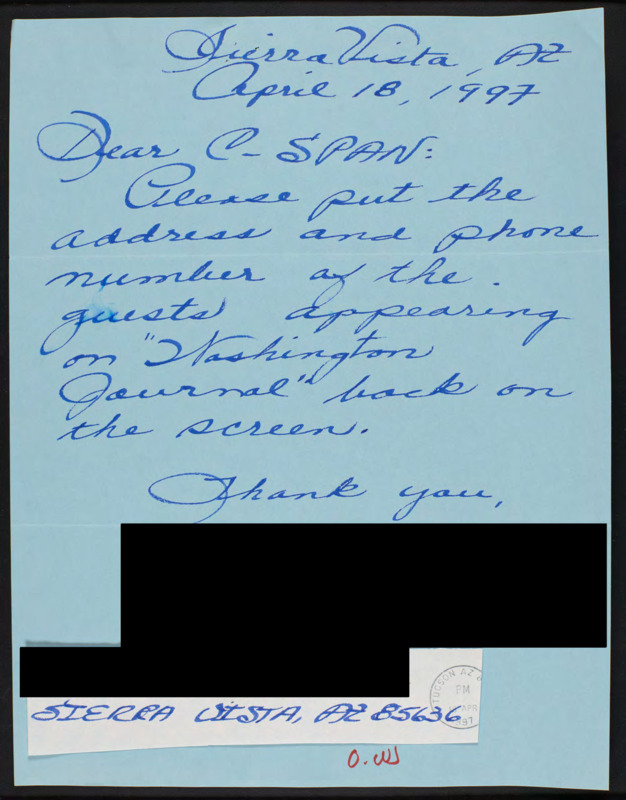 Sierra Vista, AZ
April 18, 1997
Dear C-SPAN:
Please put the
address and phone
number of the.
guests appearing
on "Washington
Journal" back on
the screen.
Thank you,
TUCSON AZ 8
PM
APR
1997
SIERRA VISTA, AZ 85636
O.W